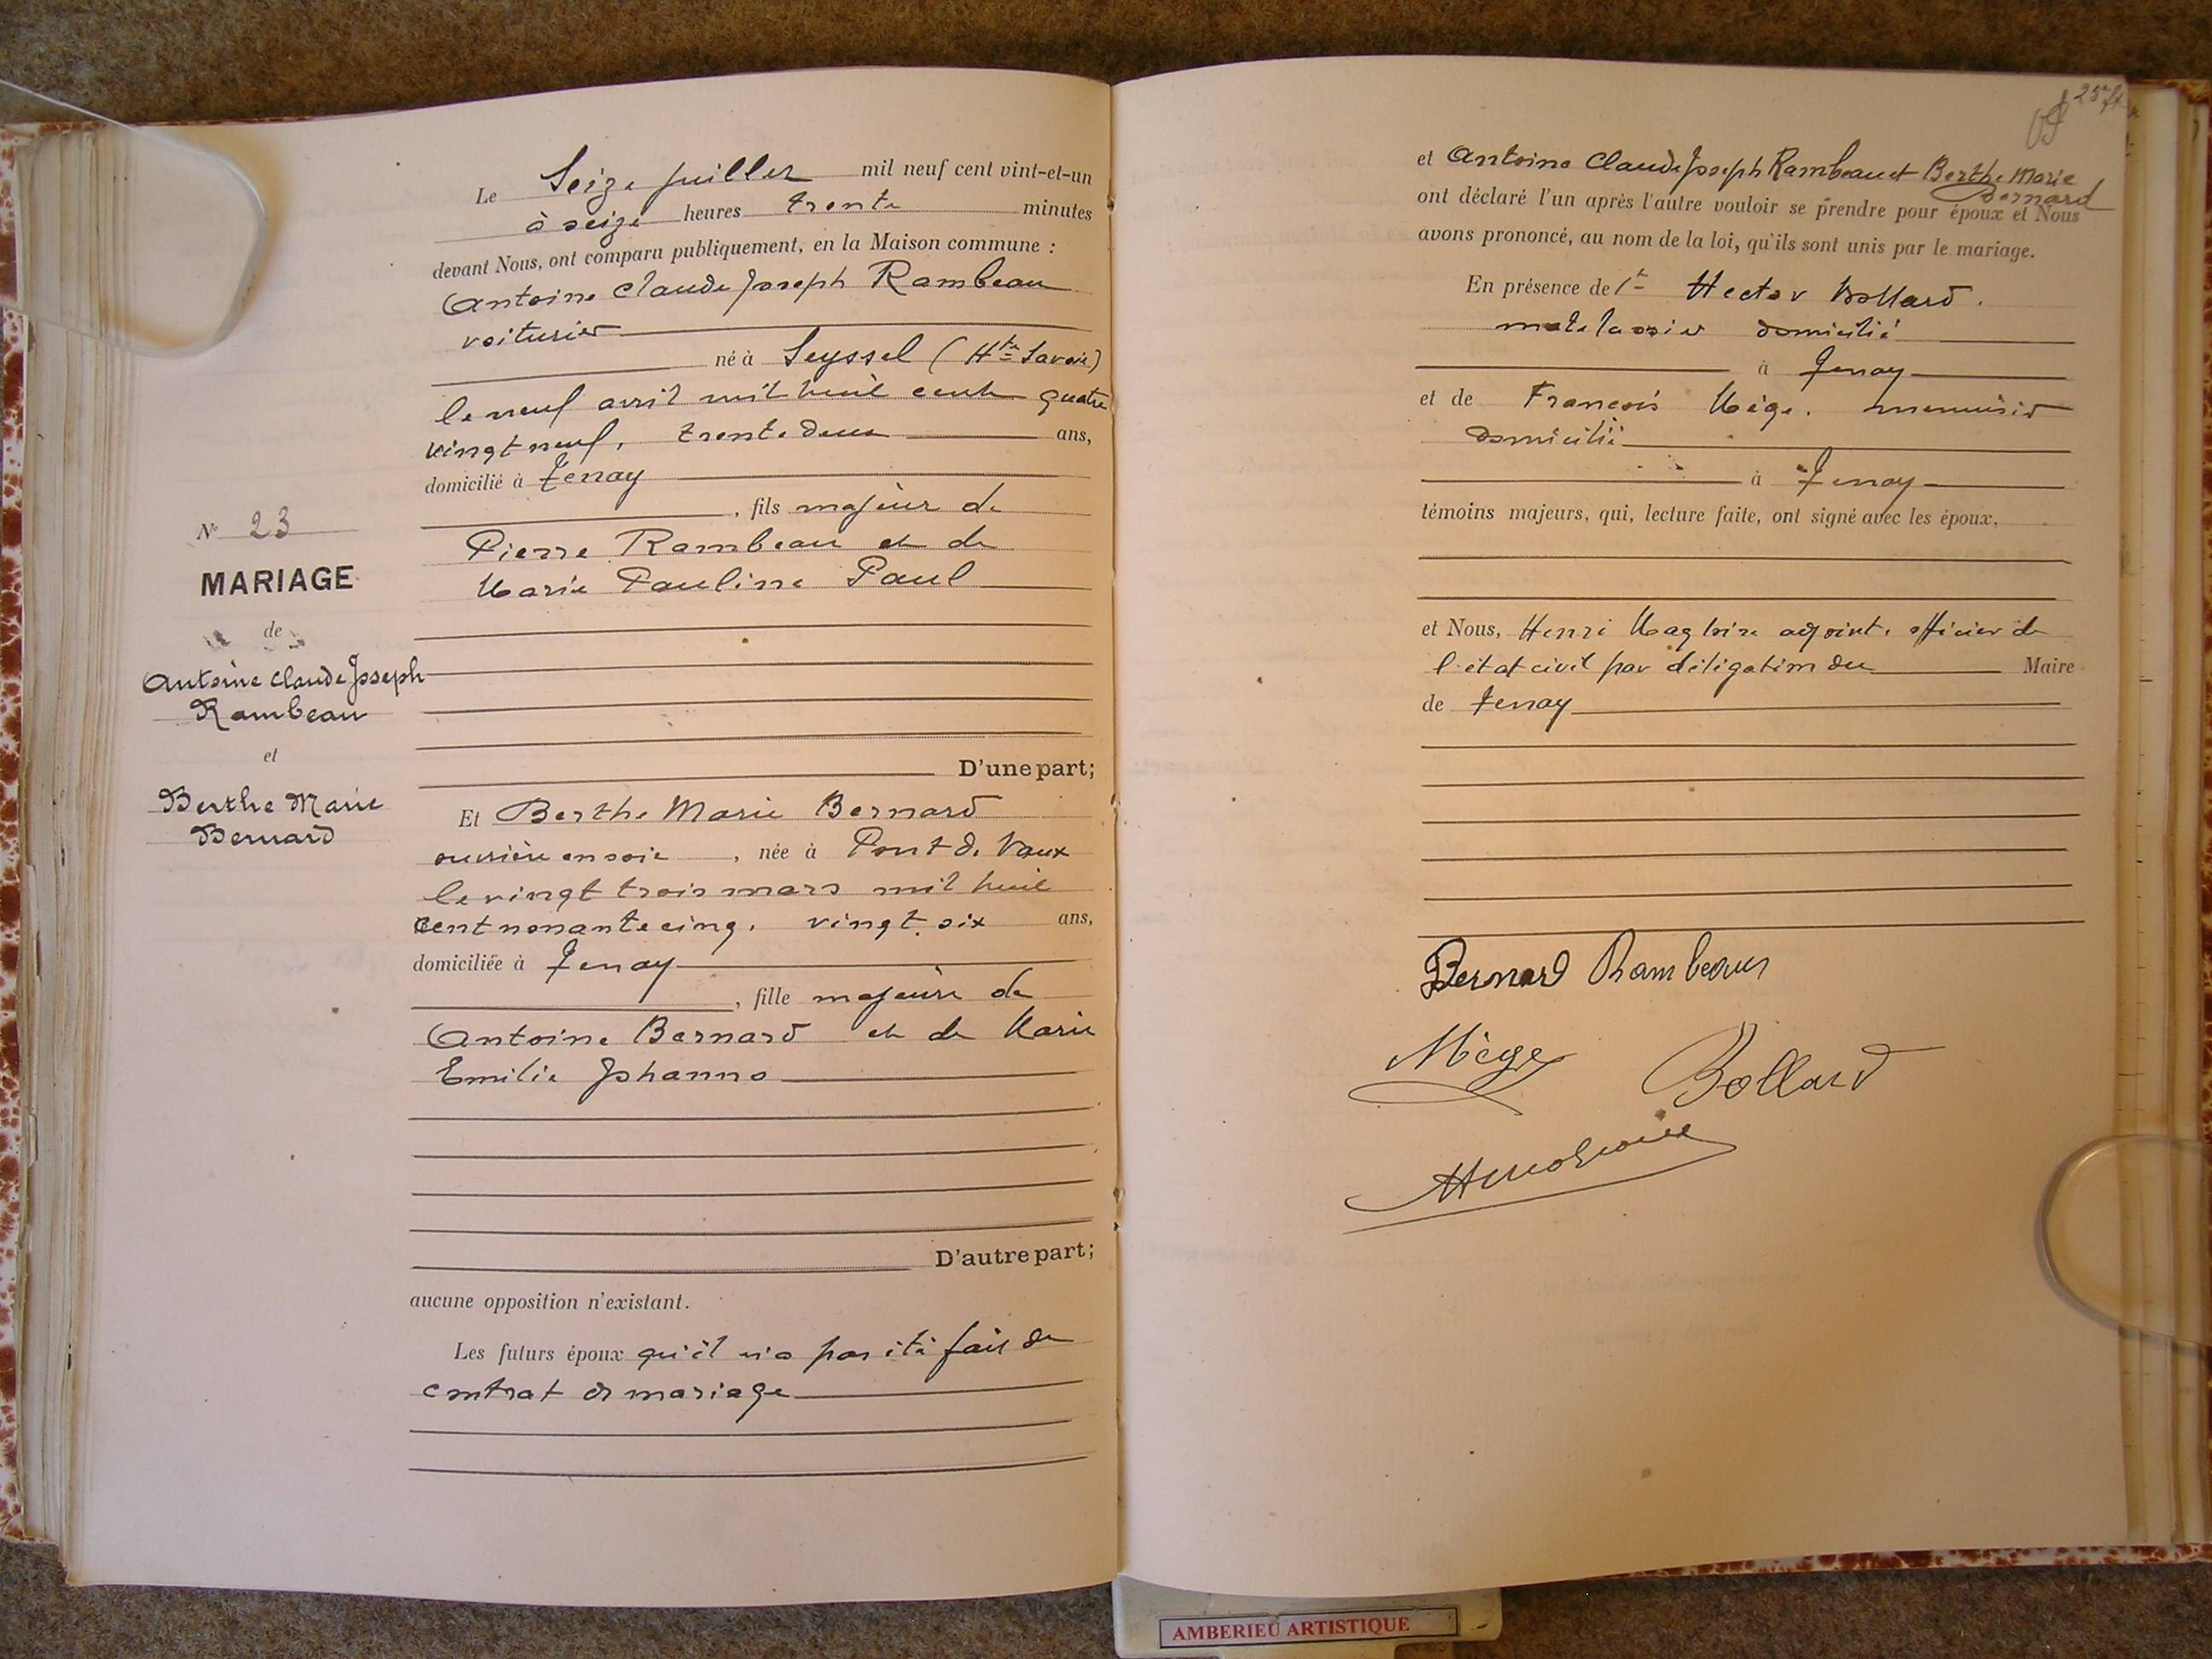 Le Seize juillet mil neuf cent vint-et-un
à seize heures trente minutes
devant Nous, ont comparu publiquement, en la Maison commune :
Antoine Claude Joseph Rambeau
voiturier
né à Seyssel (Hte Savoie)
le neuf avril mil huit cent quatre
vingt neuf, trente deux ans,
domicilié à Tenay
, fils majeur de
Pierre Rambeau et de
Marie Pauline Paul
D'une part;
N° 23
MARIAGE
de
Antoine Claude Joseph
Rambeau
et
Berthe Marie
Bernard
Et Berthe Marie Bernard
ouvrière en soie, née à Pont de Vaux
le vingt trois mars mil huit
cent nonante cinq, vingt six ans,
domiciliée à Tenay
, fille majeure de
Antoine Bernard et de Marie
Emilie Johanno
D'autre part;
aucune opposition n'existant.
Les futurs époux qu'il n'a pas été fait de
contrat de mariage
et Antoine Claude Joseph Rambeau et Berthe Marie
Bernard
ont déclaré l'un après l'autre vouloir se prendre pour époux et Nous
avons prononcé, au nom de la loi, qu'ils sont unis par le mariage.
En présence de Hector Bollard.
matelassier domicilié
à Tenay
et de François Mège, menuisier
domicilié
à Tenay
témoins majeurs, qui, lecture faite, ont signé avec les époux,
et Nous, Henri adjoint, officier de
l'état civil par délégation du Maire
de Tenay
Bernard Rambeau
Mège Bollard
AMBERIEU ARTISTIQUE